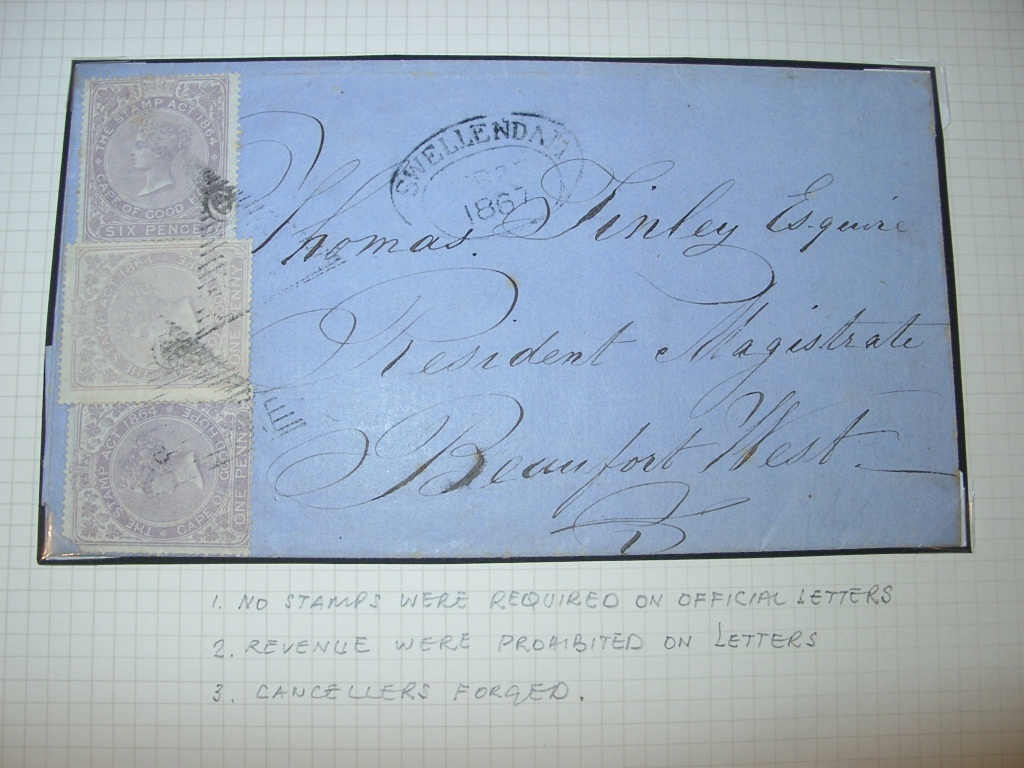 THE STAMP ACT 1864
CAPE OF GOOD
SIX PENCE
STAMP ACT 1864
ONE PENNY
THE STAMP ACT 1864
CAPE OF GOOD HOPE
ONE PENNY
SWELLENDAM
1867
Thomas Tinley Esquire
Resident Magistrate
Beaufort West
1. NO STAMPS WERE REQUIRED ON OFFICIAL LETTERS
2. REVENUE WERE PROHIBITED ON LETTERS
3. CANCELLERS FORGED.